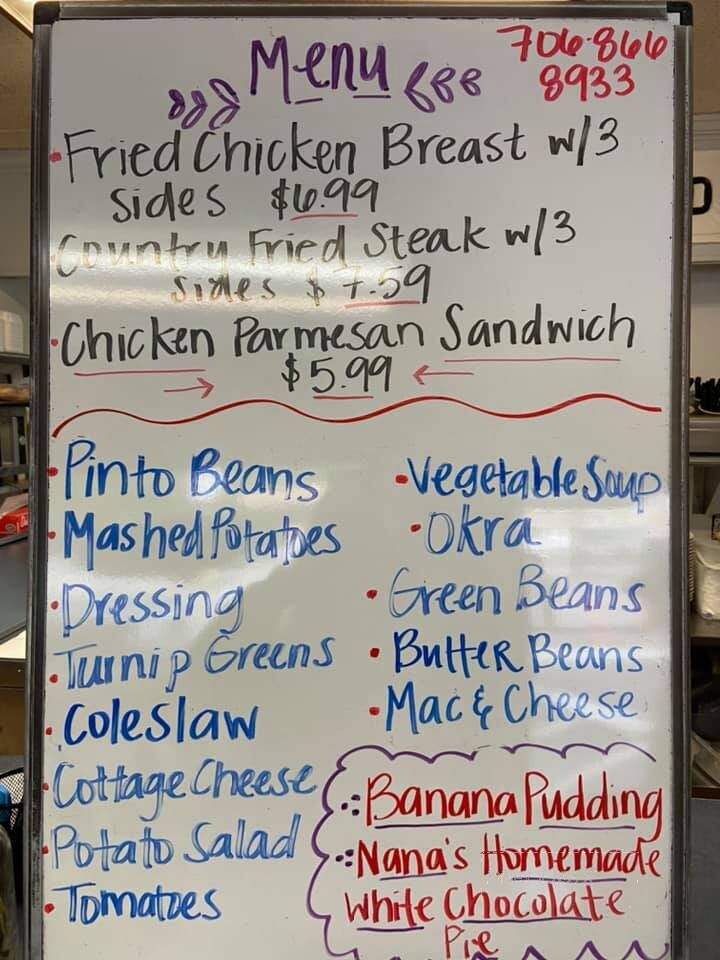 Menu
706-866
8933
·Fried Chicken Breast w/3
sides $6.99
·Country Fried Steak w/3
sides $7.59
·Chicken Parmesan Sandwich
→ $5.99 ←
·Pinto Beans
·Mashed Potatoes
·Dressing
·Turnip Greens
·Coleslaw
·Cottage Cheese
·Potato Salad
·Tomatoes
·Vegetable Soup
·Okra
·Green Beans
·Butter Beans
·Mac & Cheese
Banana Pudding
Nana's Homemade
White Chocolate
Pie